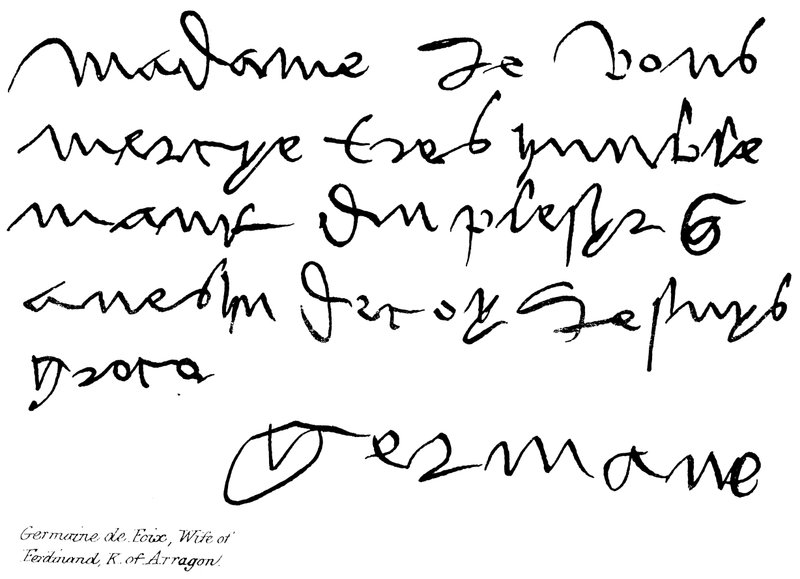 madame Je vous
mercye tres humble
mant du plesyr
Je suys
Germane
Germaine de Foix, Wife of
Ferdinand, K. of Arragon.